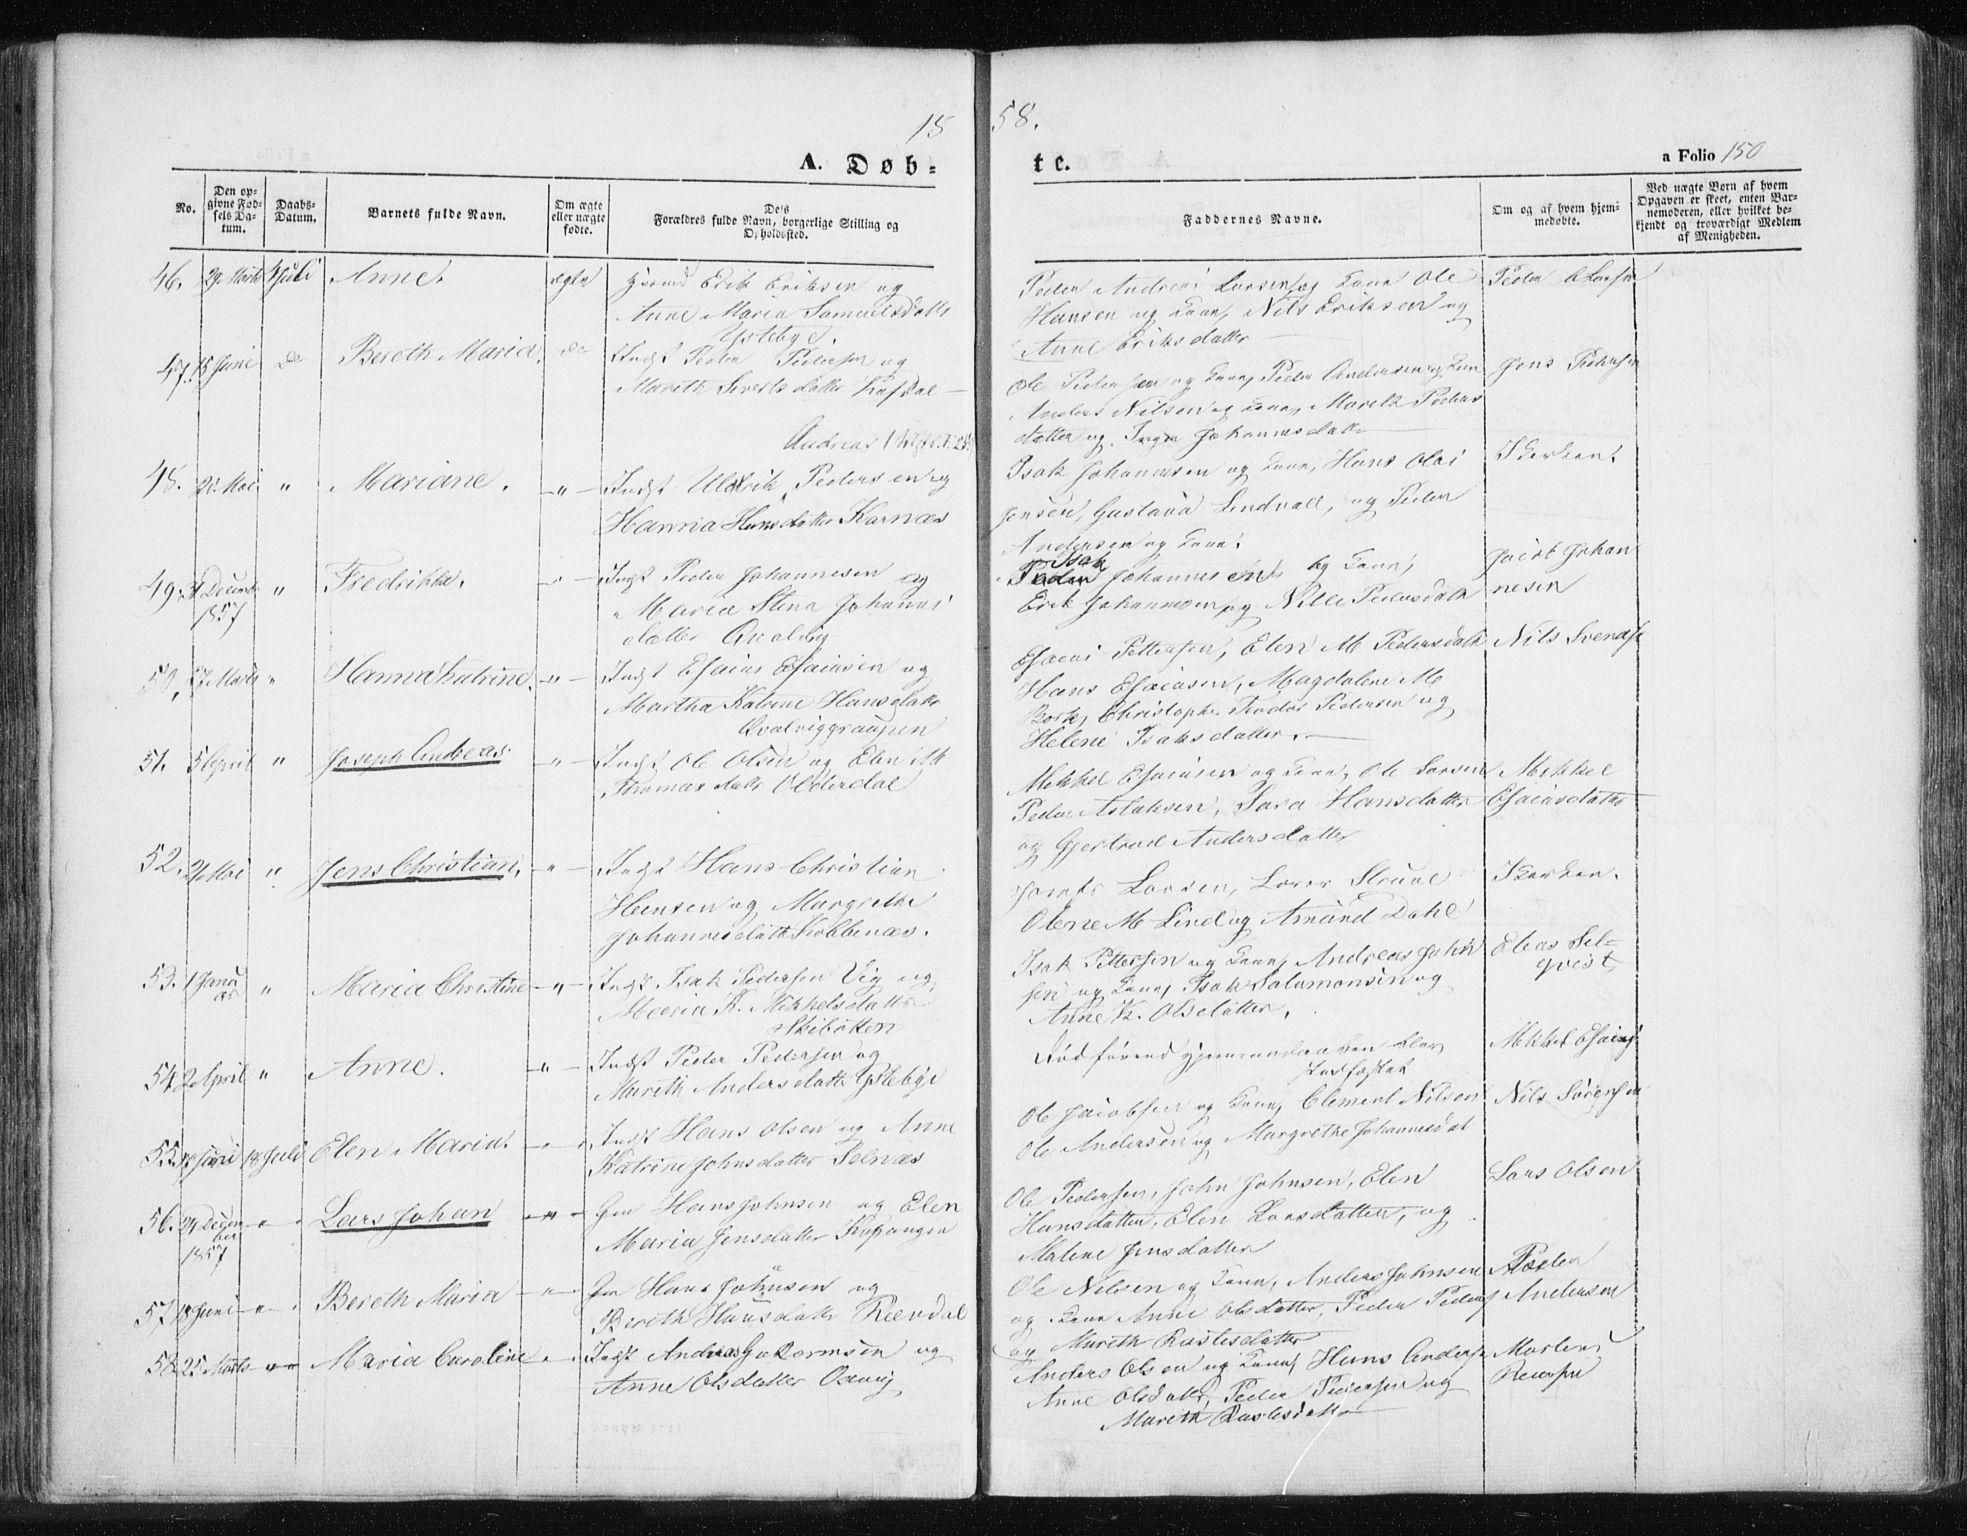 1858.
A. Døb-
te.
a Folio 150
No.
Den op-
givne Fød-
sels Da-
tum.
Daabs-
Datum.
Barnets fulde Navn.
Om ægte
eller uægte
fødte.
De's
Forældres fulde Navn, borgerlige Stilling og
Opholdssted.
Faddernes Navne.
Om og af hvem hjem-
medøbte.
Ved uægte Børn af hvem
Opgaven er skeet, enten Bar-
nemoderen, eller hvilket be-
kjendt og troværdigt Medlem
af Menigheden.
46. 29 Marts 4 Juli Anne. ægte Erik Eriksen og
Anne Maria Samuelsdatter
Ystebye.
Peder Andreas Larsen og Kone Ole
Hansen og Kone, Nils Eriksen og
Anne Eriksdatter
Peder Larsen
47. 13 Juni do Bereth Maria. do Indst Peder Pedersen og
Mareth Sivertsdatter
Ole Pedersen og Kone, Peder Andersen og Kone
Anders Nilsen og Kone, Mareth Peders
datter og Inger Johannesdatter
Jens Pedersen
Andreas
48. 21 Mai " Mariane. -"- Indst Ulrik Pedersen og
Hanna Hansdatter Karnæs
Isak Johannesen og Kone, Hans Olai
Jensen, Gustava Lindvall, og Peder
Andersen og Kone.
I Kirken.
49. 31 Decembr
1857 " Fredrikka. -"- Indst Peder Johannesen og
Maria Stina Johannes
datter Qvalvig
Isak
Peder Johannesen og Kone,
Erik Johannesen og Nille Pedersdatter
Jacob Johan
nesen
50. 27 Marts " Hanna Katrine. -"- Indst Esaias Esaiasen og
Martha Katrine Hansdatter
Esaias Pettersen, Elen M Pedersdatter
Hans Esaiasen, Magdalene M
Bork, Christopher Teodor Pedersen og
Helene Isaksdatter.
Nils Svendsen
51. 5 April " Joseph Andreas. -"- Indst Ole Olsen og Elen M
Thomasdatter Olderdal
Mikkel Esaiasen og Kone, Ole Larsen
Peder Aslaksen, Sara Hansdatter
og Gjertrud Andersdatter
Mikkel
Esaiasdatter
52. 21 Mai " Jens Christian. -"- Indst Hans Christian
Hansen og Margrethe
Johannesdatter Kobbenæs.
Larsen, Struve
Olene M Lind og Amund Dahl
I Kirken.
53. 1 Janu
ar " Maria Christine -"- Indst Isak Pedersen Vig og
Maria K. Mikkelsdatter
Skibotten
Isak Pettersen og Kone, Andreas John
sen og Kone, Isak Salamonsen og
Anne K. Olsdatter.
Elias Sel=
qvist
54. 2 April " Anne. -"- Indst Peder Pedersen og
Mareth Andersdatter Ystebye
Død førend Hjemmedaaben blev
stadfæstet
Mikkel Esaias
55. Juni 18 Juli Elen Maria. -"- Indst Hans Olsen og Anne
Katrine Johnsdatter Selnæs
Ole Jacobsen og Kone, Clement Nilsen
Ole Andersen og Margrethe Johannesdat
Nils Sørensen
56. 24 Decem
ber
1857 -"- Lars Johan -"- Gm Hans Johnsen og Elen
Maria Jensdatter
Ole Pedersen, John Johnsen, Elen
Hansdatter, Elen Larsdatter, og
Malene Jensdatter
Lars Olsen
57. 18 Juni -"- Bereth Maria -"- Gm Hans Johnsen og
Bereth Hansdatter
Ole Nilsen og Kone, Anders Johnsen
og Kone Anne Olsdatter, Peder Peders
og Mareth Rastesdatter
Peder
Andersen
58. 25 Marts -"- Maria Caroline -"- Indst Andreas Gutormsen og
Anne Olsdatter
Anders Olsen og Kone, Hans Anders
Anne Olsdatter, Peder Pedersen og
Mareth Rastesdatter
Mortens